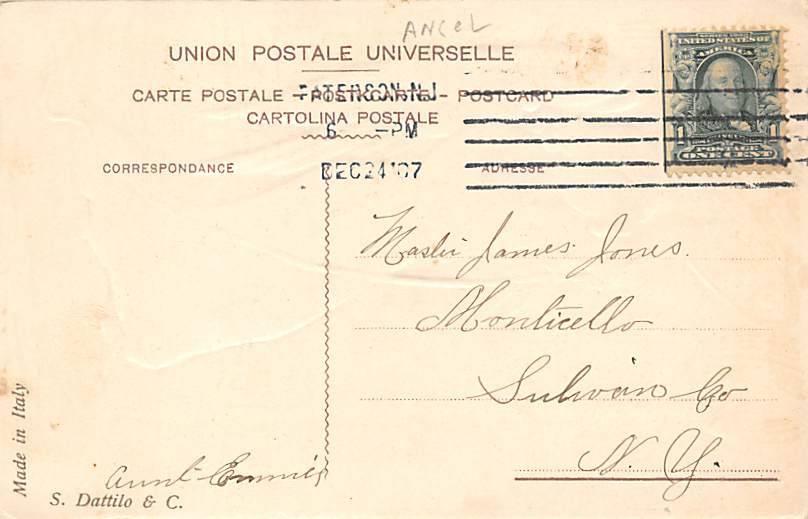 ANCeL
UNION POSTALE UNIVERSELLE
CARTE POSTALE – POSTKARTE – POSTCARD
CARTOLINA POSTALE
PATERSON, N.J.
6 –PM
DEC 24 '07
SERIES 1902
UNITED STATES OF
AMERICA
1 1
POSTAGE
ONE CENT
CORRESPONDANCE
ADRESSE
Master James Jones.
Monticello
Sulivan Co
N. Y.
Aunt Emmie
Made in Italy
S. Dattilo & C.